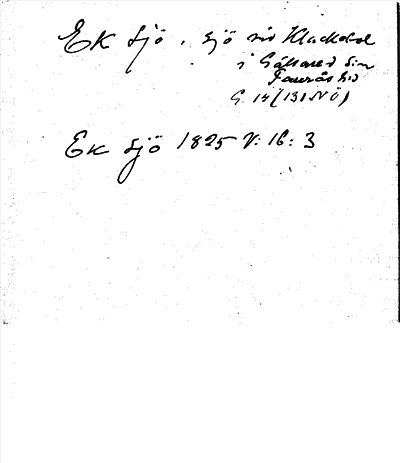 Ek sjö, sjö vid Klackdal
i Gällared sn
Faurås hd
G 14 (131 NÖ)
Ek sjö 1825 V: 16: 3